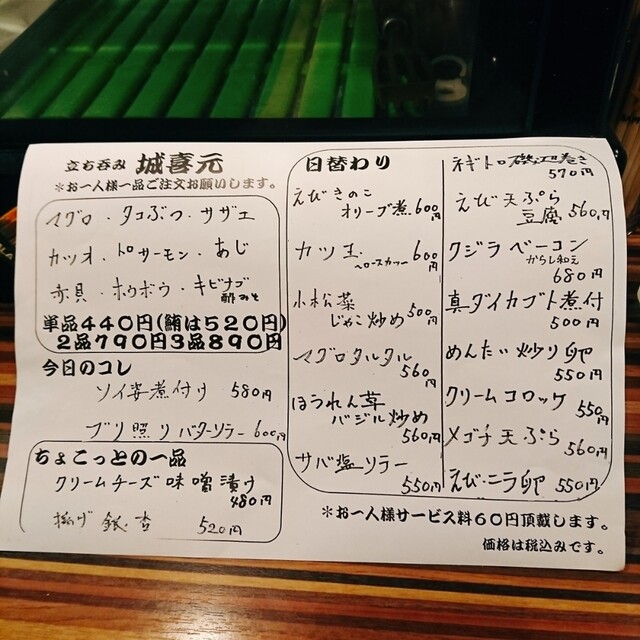 立ち呑み 城喜元
＊お一人様一品ご注文お願いします。
マグロ・タコぶつ・サザエ
カツオ・トロサーモン・あじ
赤貝・ホウボウ・キビナゴ
酢みそ
単品４４０円(鮪は５２０円)
２品７９０円３品８９０円
今日のコレ
ソイ姿煮付け 580円
ブリ照りバターソテー 600円
ちょこっとの一品
クリームチーズ味噌漬け
480円
揚げ銀杏 520円
日替わり
えびきのこ
オリーブ煮 600円
カツ玉 600円
小松菜
じゃこ炒め 500円
マグロタルタル
560円
ほうれん草
バジル炒め
560円
サバ塩ソテー
550円
ネギトロ磯辺巻き
570円
えび天ぷら
豆腐 560円
クジラベーコン
からし和え
680円
真ダイカブト煮付
500円
めんたい炒り卵
550円
クリームコロッケ
550円
メゴチ天ぷら
560円
えび・ニラ卵 550円
＊お一人様サービス料６０円頂戴します。
価格は税込みです。